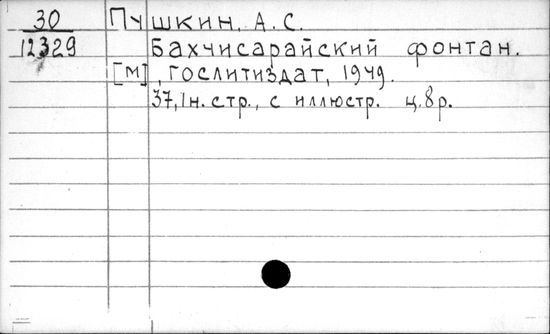 30 Пушкин, А.С.
12329 Бахчисарайский фонтан.
[м], Гослитиздат, 1949.
37,1н.стр., с иллюстр. ц.8р.